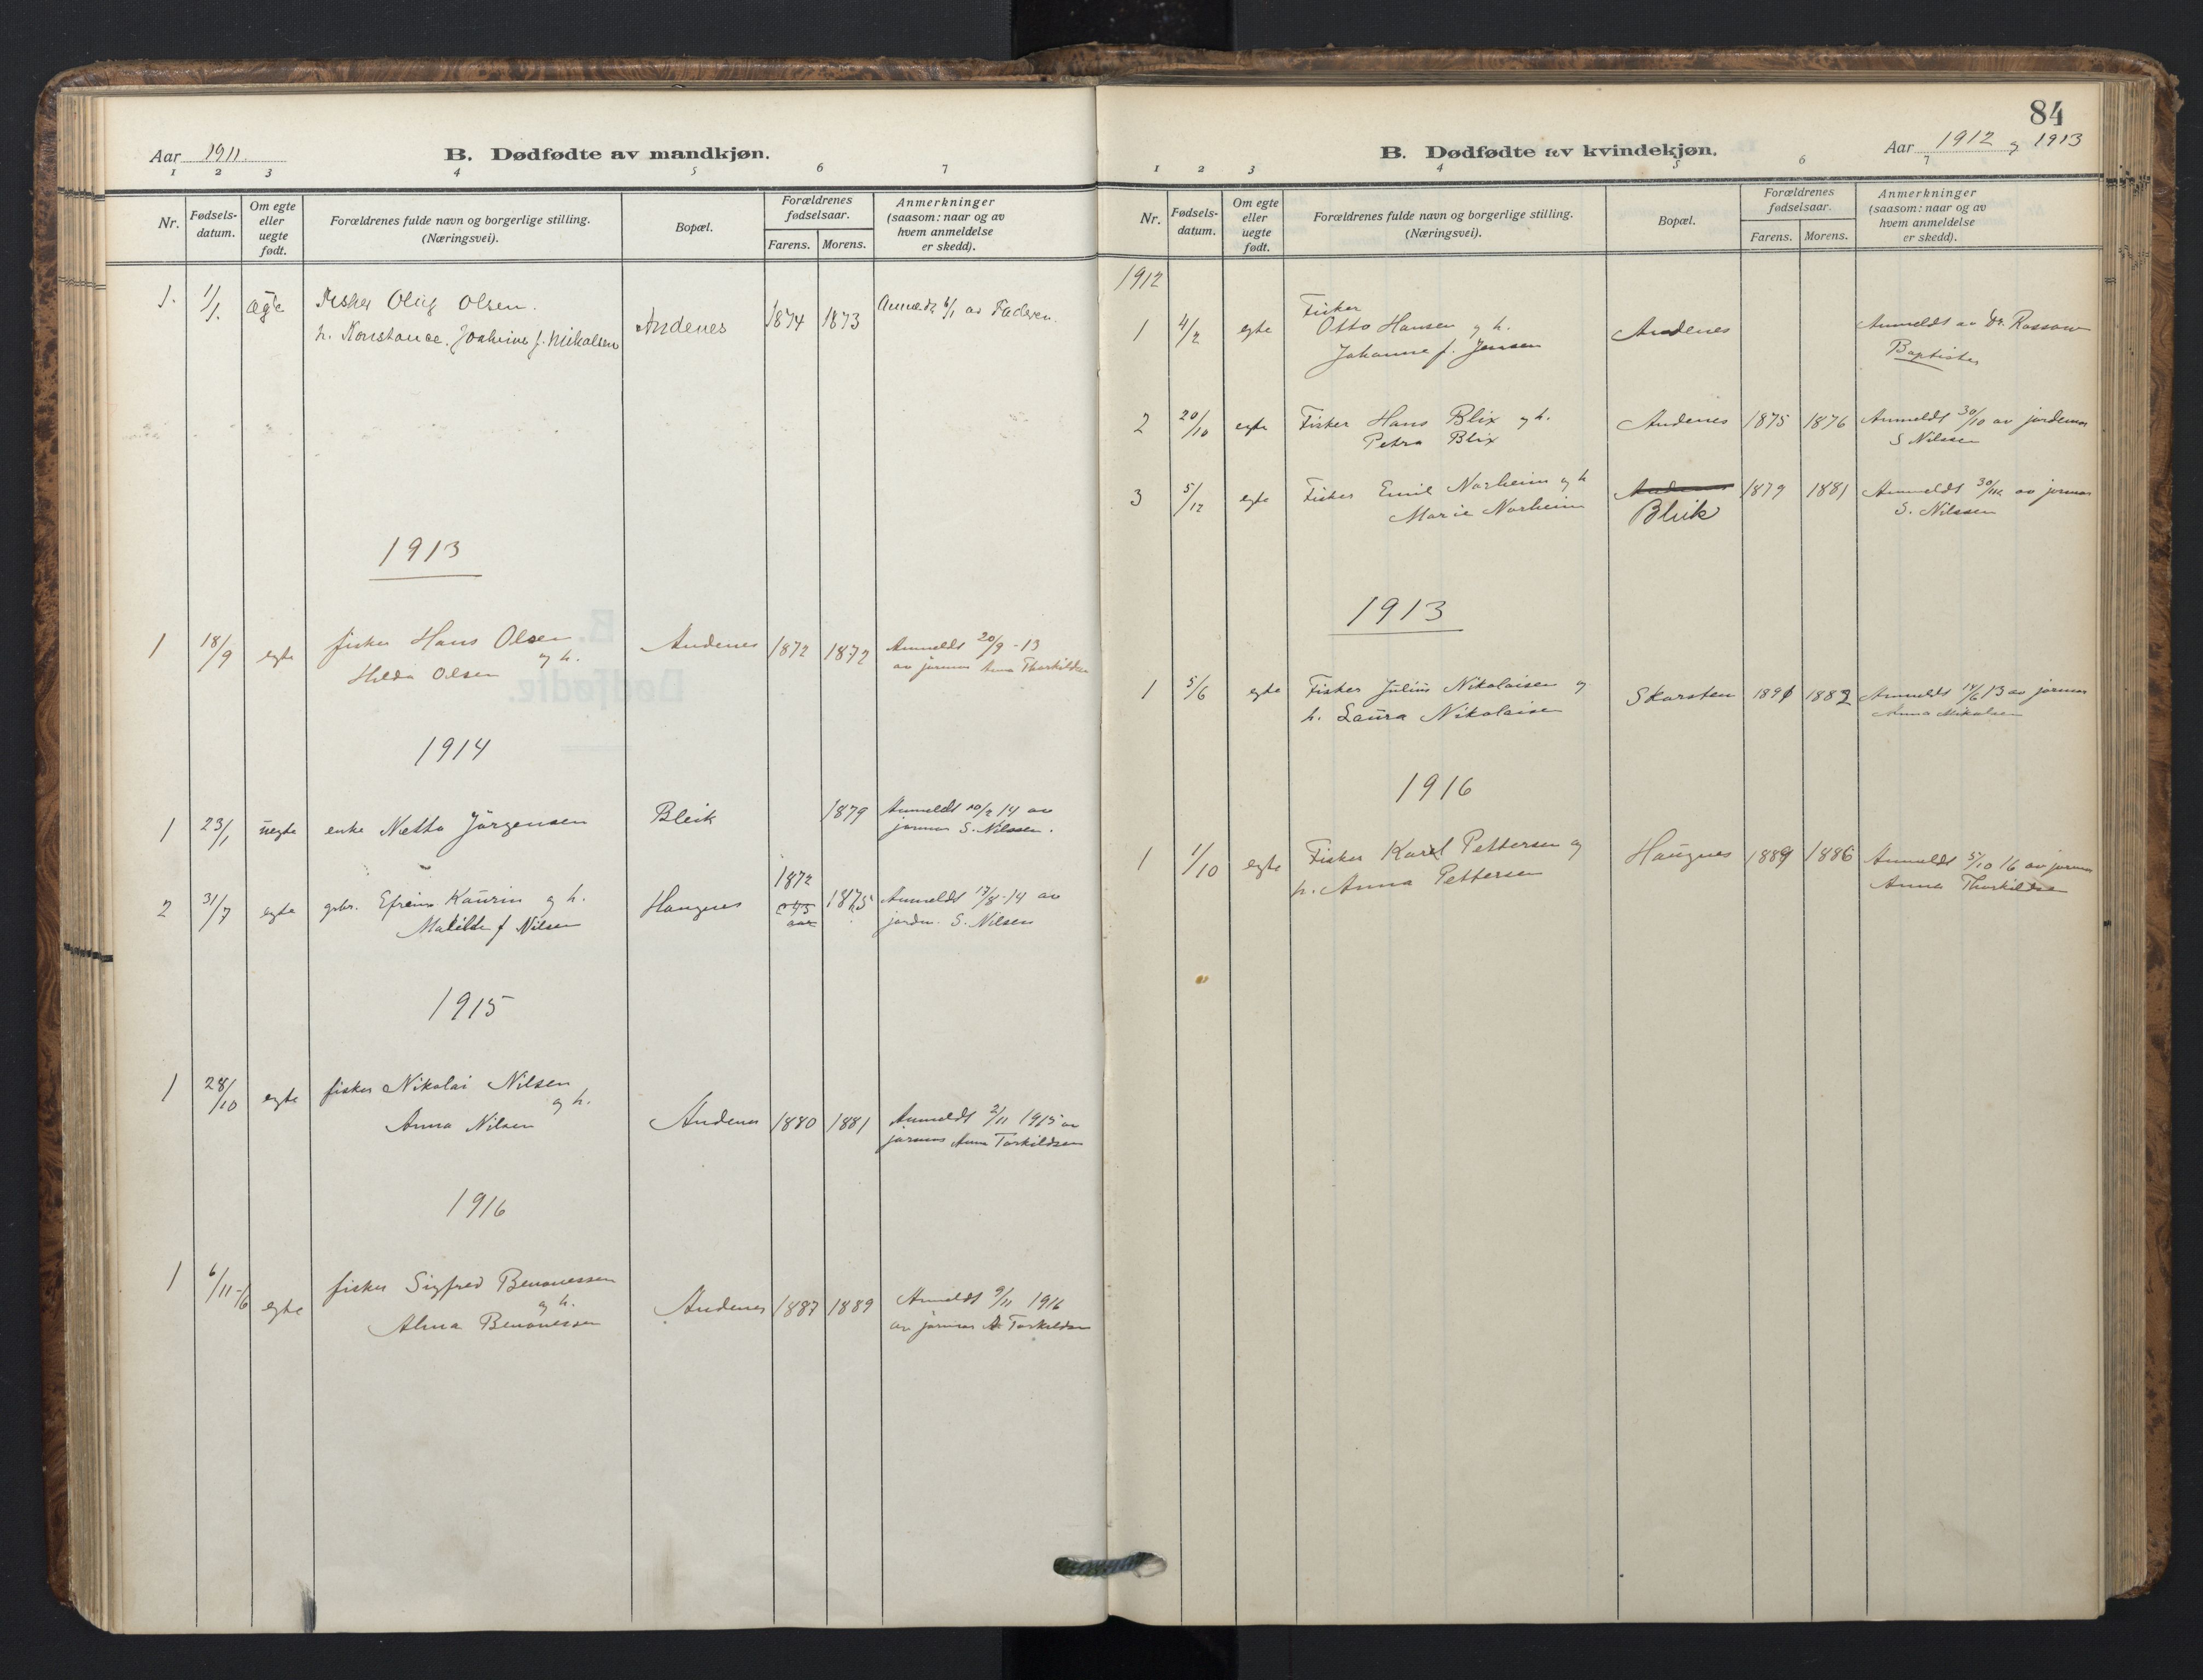 Aar 1911.
B. Dødfødte av mandkjøn.
1 2 3 4 5 6 7
Nr.
Fødsels-
datum.
Om egte
eller
uegte
født.
Forældrenes fulde navn og borgerlige stilling.
(Næringsvei).
Bopæl.
Forældrenes
fødselsaar.
Farens. Morens.
Anmerkninger
(saasom: naar og av
hvem anmeldelse
er skedd).
1. 1/1. ægte Fisker Oluf Olsen. Andenes 1874 1873 Anmeldt 6/1 av Faderen.
h. Konstance. Joakime f. Mikalsen
1913
1 18/9 egte fisker Hans Olsen Andenes 1872 1872 Anmeldt 20/9 - 13
og h. av jormor Anna Thorkildsen
Hilda Olsen
1914
1 23/1 uegte enke Netta Jörgensen Bleik 1879 Anmeldt 10/2 14 av
jormor S. Nilssen.
2 31/7 egte gbr. Efreim Kaurin og h. Haugnes 1872 1875 Anmeldt 17/8-14 av
Matilde f Nilsen aar jordm. S. Nilsen
1915
1 28/10 egte fisker Nikolai Nilsen
og h.
Anna Nilsen Andenes 1880 1881 Anmeldt 2/11 1915 av
jormor Anna Torkildsen
1916
1 6/11-16 egte fisker Sigfred Benonessen
og h. Andenes 1887 1889 Anmeldt 9/11 1916
Alma Benonessen av jormor A Torkildsen
84
Aar 1912 og 1913
B. Dødfødte av kvindekjøn.
1 2 3 4 5 6 7
Nr.
Fødsels-
datum.
Om egte
eller
uegte
født.
Forældrenes fulde navn og borgerlige stilling.
(Næringsvei).
Bopæl.
Forældrenes
fødselsaar.
Farens. Morens.
Anmerkninger
(saasom: naar og av
hvem anmeldelse
er skedd).
1912
Fisker
1 4/2 egte Otto Hansen og h. Andenes Anmeldt av Dr. Rossow
Johanne f. Jensen Baptister
2 20/10 egte Fisker Hans Blix og h. Andenes 1875 1876 Anmeldt 30/10 av jordemor
Petra Blix S Nilssen
3 5/12 egte Fisker Emil Norheim og h Andenes 1879 1881 Anmeldt 30/12 av jormor
Marie Norheim Bleik S. Nilssen
1913
1 5/6 egte Fisker Julius Nikolaisen og Skarsten 1891 1882 Anmeldt 14/6 13 av jormor
h. Laura Nikolaisen Anna Mikalsen
1916
1 1/10 egte Fisker Karl Pettersen og Haugnes 1889 1886 Anmeldt 5/10 16 av jormor
h. Anna Pettersen Anna Thorkildsen